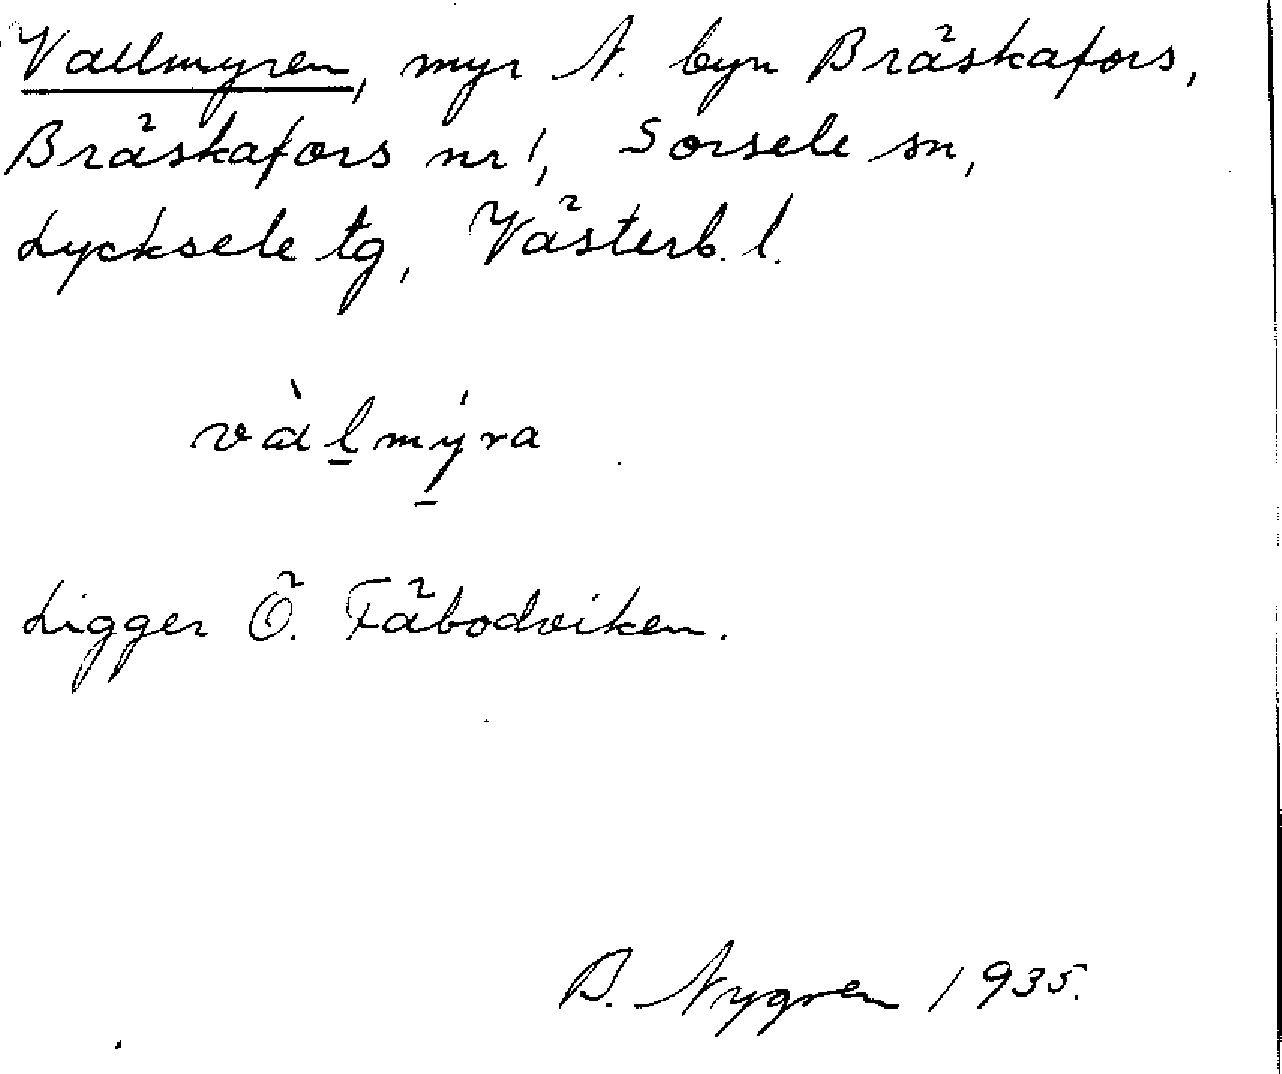 Vallmyren, myr N. byn Bräskafors,
Bräskafors nr 1, Sorsele sn,
Lycksele tg, Västerb. l.
vàl̲mý̲ra
Ligger Ö. Fäbodviken.
B. Nygren 1935.